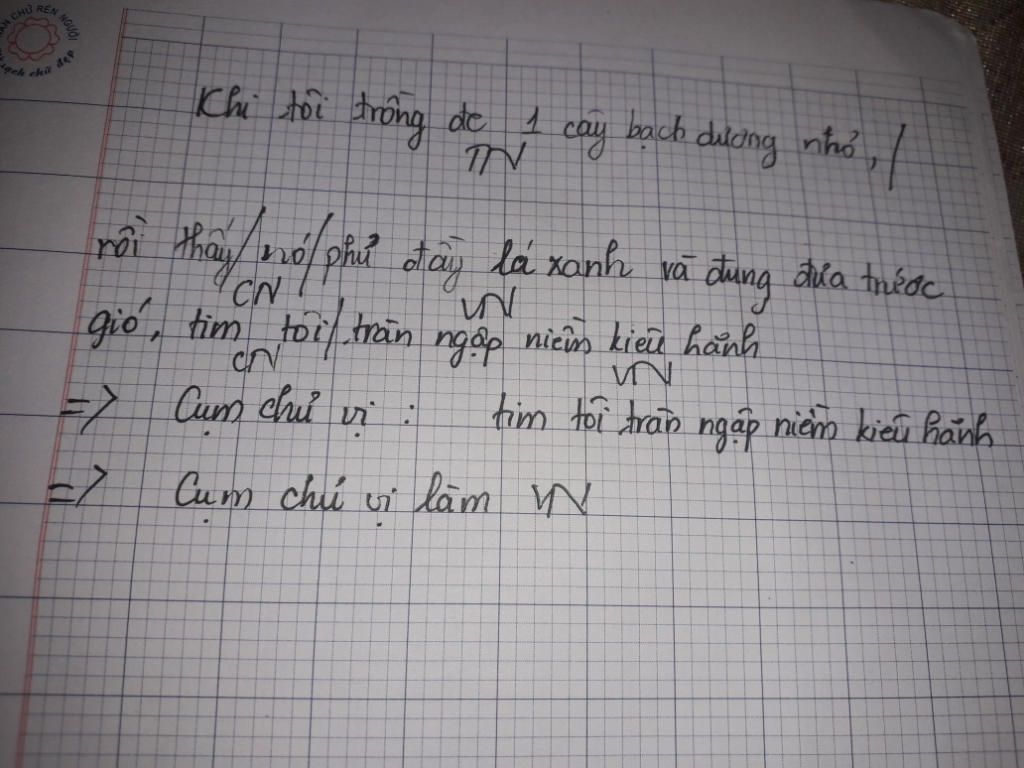 ÂN CHỮ RÈN NGƯỜI
sạch chữ đẹp
Khi tôi trồng đc 1 cây bạch dương nhỏ, /
TN
rồi thấy/nó/phủ đầy lá xanh và đung đưa trước
CN VN
gió, tim tôi/ tràn ngập niềm kiêu hãnh
CN VN
=> Cụm chủ vị : tim tôi tràn ngập niềm kiêu hãnh
=> Cụm chủ vị làm VN